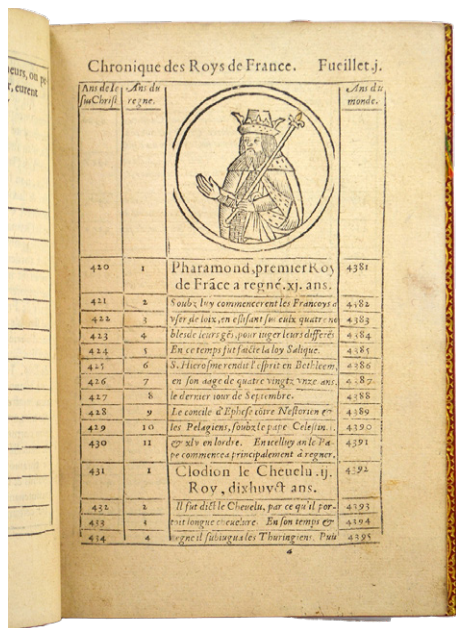 eurs, ou pe
r, eurent
Chronique des Roys de France. Fueillet.j.
Ans de Ie Ans du Ans du
sus Christ. regne. monde.
420 1 Pharamond, premier Roy 4381
de Frãce a regné. xj. ans.
421 2 Soubz luy commencerent les Francoys a 4382
422 3 vser de loix, en eslisant sur eulx quatre no 4383
423 4 bles de leurs gẽs, pour iuger leurs differẽs 4384
424 5 En ce temps fut faicte la loy Salique. 4385
425 6 S. Hierosme rendit l'esprit en Bethleem, 4386
426 7 en son aage de quatre vingtz vnze ans, 4387
427 8 le dernier iour de Septembre. 4388
428 9 Le concile d'Ephese cõtre Nestorien & 4389
429 10 les Pelagiens, soubz le pape Celestin. 4390
430 11 & xlv en lordre. En icelluy an le Pa- 4391
pe commencea principalement à regner.
431 1 Clodion le Cheuelu .ij. 4392
Roy, dixhuyct ans.
432 2 Il fut dict le Cheuelu, par ce qu'il por- 4393
433 3 toit longue cheuelure. En son temps & 4394
434 4 regne il subiugua les Thuringiens. Puis 4395